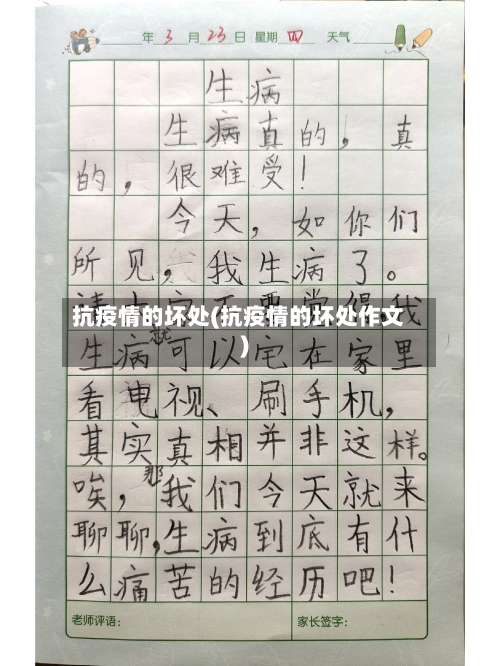 年 3 月 23 日 星期 四 天气
生病
生病真的，真
的，很难受！
今天，如你们
所见，我生病了。
抗疫情的坏处(抗疫情的坏处作文
)
我
就
生病可以宅在家里
看电视、刷手机，
其实真相并非这样。
那
唉，我们今天就来
聊聊，生病到底有什
么痛苦的经历吧！
老师评语： 家长签字：